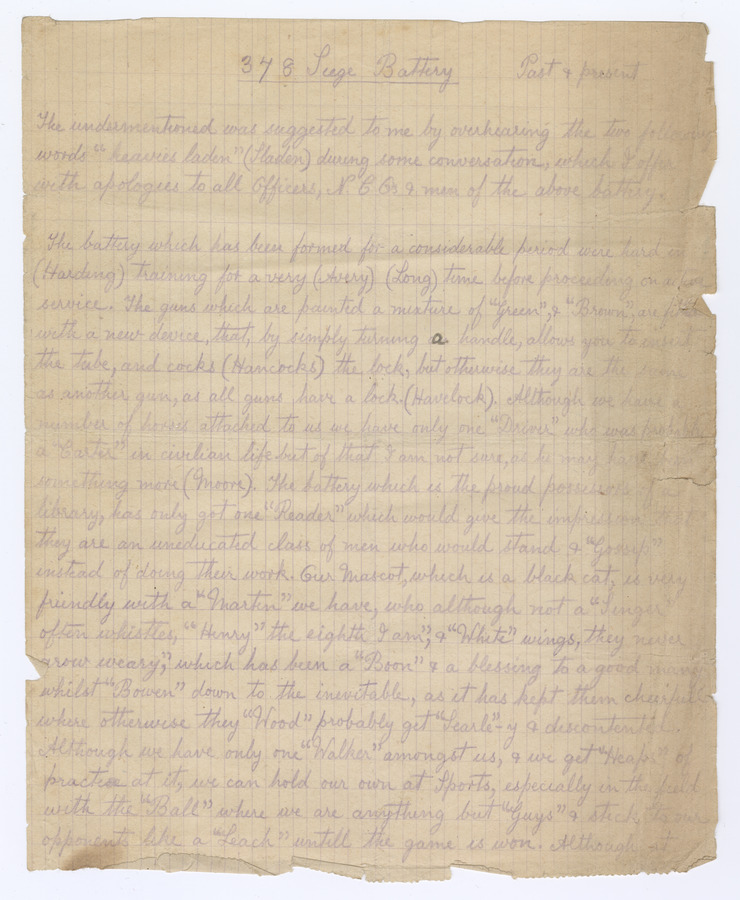 378 Seige Battery Past & present
The undermentioned was suggested to me by overhearing the two following
words "heavies laden" (Sladen) during some conversation, which I offer
with apologies to all Officers, N.C.Os & men of the above battery.
The battery which has been formed for a considerable period were hard in
(Harding) training for a very (Avery) (Long) time before proceeding on active
service. The guns which are painted a mixture of "Green", & "Brown", are
with a new device, that, by simply turning a handle, allows you to insert
the tube, and cocks (Hancocks) the lock, but otherwise they are the same
as another gun, as all guns have a lock. (Havelock). Although we have a
number of horses attached to us we have only one "Driver" who was probably
a "Carter" in civilian life but of that I am not sure, as he may have been
something more (Moore). The battery which is the proud possessor of a
library, has only got one "Reader" which would give the impression that
they are an uneducated class of men who would stand & "Gossip"
instead of doing their work. Our Mascot, which is a black cat, is very
friendly with a "Martin" we have, who although not a "Singer"
often whistles, "Henry" the eighth I am", & "White" wings, they never
grow weary", which has been a "Boon" & a blessing to a good many
whilst "Bowen" down to the inevitable, as it has kept them cheerful
where otherwise they "Wood" probably get "Searle"-y & discontented.
Although we have only one "Walker" amongst us, & we get "Heaps" of
practice at it, we can hold our own at Sports, especially in the field
with the "Ball" where we are anything but "Guys" & stick to our
opponents like a "Leach" untill the game is won. Although at